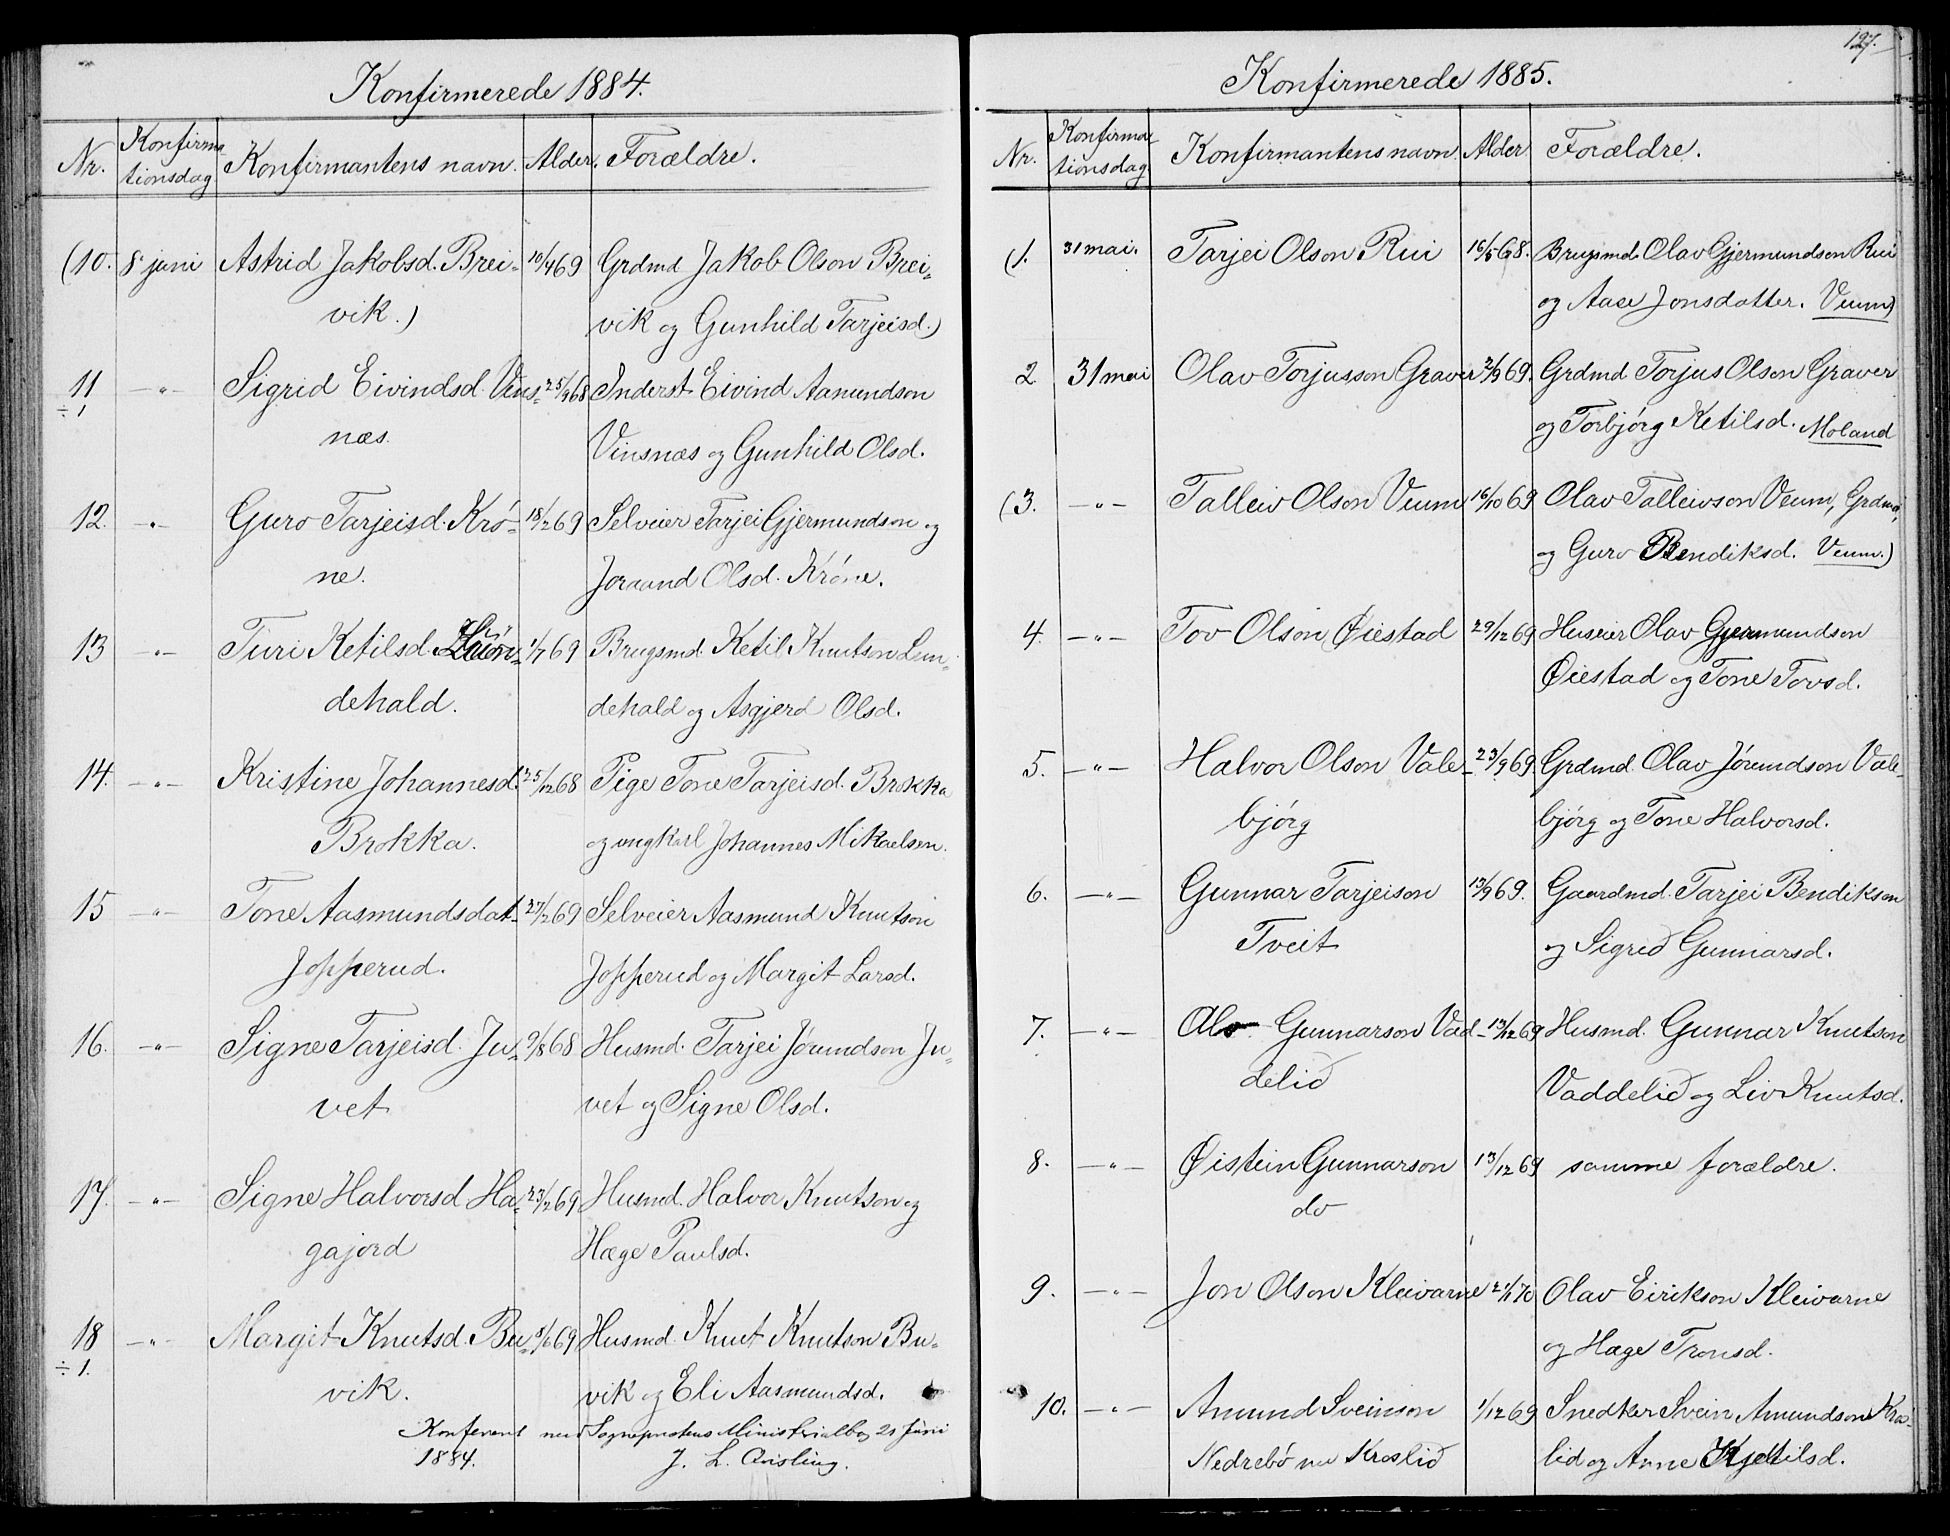 Konfirmerede 1884.
Nr. Konfirma- tionsdag Konfirmantens navn. Alder. Forældre.
(10. 8 juni Astrid Jakobsd. Brei- 10/4 69 Grdmd Jakob Olson Brei-
vik.) vik og Gunhild Tarjeisd.)
11 -"- Sigrid Eivindsd. Vins- 25/9 68 Inderst Eivind Aamundson
÷1 næs. Vinsnæs og Gunhild Olsd.
12. -"- Guro Tarjeisd. Kró- 18/2 69 Selveier Tarjei Gjermundson og
ne. Joraand Olsd. Króne.
13 -"- Turi Ketilsd. 1/7 69 Brugsmd. Ketil Knutson Lun-
dehald. dehald og Asgjerd Olsd.
14. -"- Kristine Johannesd. 25/12 68 Pige Tone Tarjeisd. Brokka
Brokka. og ungkarl Johannes Mikaelsen.
15 -"- Tone Aasmundsdat. 27/2 69 Selveier Aasmund Knutson
Jopperud. Jopperud og Margit Larsd.
16. -"- Signe Tarjeisd. Ju- 9/8 68 Husmd. Tarjei Jørundson Ju-
vet vet og Signe Olsd.
17. -"- Signe Halvorsd Ha- 23/2 69 Husmd. Halvor Knutson og
gajord Hæge Paulsd.
18 -"- Margit Knutsd. Bu- 69 Husmd. Knut Knutson Bu-
÷1. vik. vik og Eli Aasmundsd.
Konfereret med Sogneprestens Ministerialbog 21 Juni
1884. J. L. Qvisling.
127.
Konfirmerede 1885.
Nr. Konfirma- tionsdag Konfirmantens navn. Alder Forældre.
(1. 31 mai. Tarjei Olson Rui 16/5 68. Brugsmd. Olav Gjermundson Rui
og Aase Jonsdatter. Veum)
2 31 mai Olav Torjusson Graver 2/9 69. Grdmd Torjus Olson Graver
og Torbjórg Ketilsd. Moland
(3. -"- Talleiv Olson Veum 16/10 69 Olav Talleivson Veum, Grdmd,
og Guro Bendiksd. Veum.)
4. -"- Tov Olson Øiestad 29/12 69 Huseier Olav Gjermundson
Øiestad og Tone Tovsd.
5. -"- Halvor Olson Vale- 23/9 69. Grdmd. Olav Jørundson Vale-
bjórg bjórg og Tone Halvorsd.
6. -"- Gunnar Tarjeison 13/9 69. Gaardmd. Tarjei Bendikson
Tveit og Sigrid Gunnarsd.
7. -"- Alv Gunnarson Vad- 13/12 69 Husmd. Gunnar Knutson
delid Vaddelid og Liv Knutsd.
8. -"- Øistein Gunnarson 13/12 69 samme forældre.
do
9. -"- Jon Olson Kleivarne 21/1 70 Olav Eirikson Kleivarne
og Hæge Tronsd.
10. -"- Amund Sveinson 1/12 69 Snedker Svein Amundson Kros-
Nedrebó nu Kroslid lid og Anne Kjetilsd.